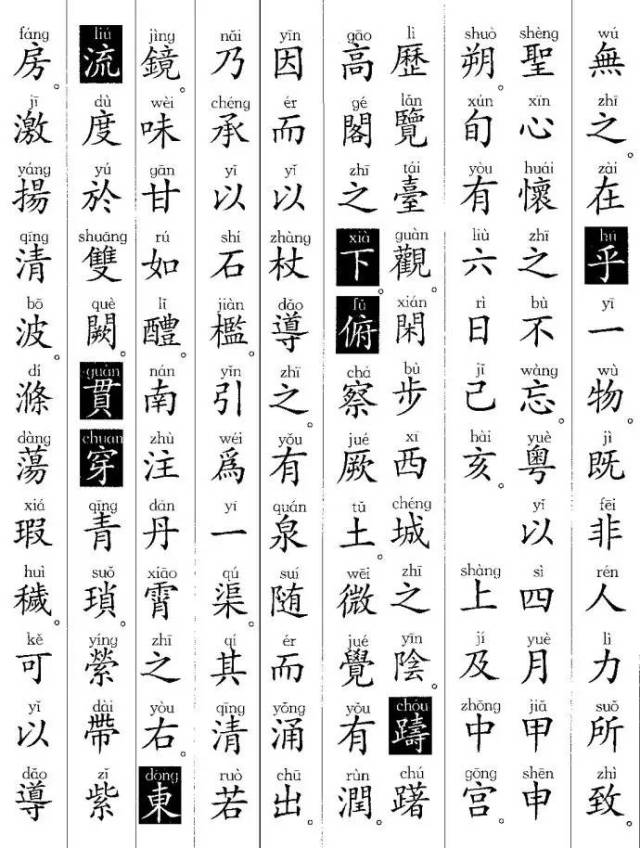 wú 無 zhī 之。 zài 在 hū 乎 yī 一 wù 物。 jì 既 fēi 非 rén 人 lì 力 suǒ 所 zhì 致
shèng 聖 xīn 心 huái 懷 zhī 之 bù 不 wàng 忘。 yuè 粵 yǐ 以 sì 四 yuè 月 jiǎ 甲 shēn 申
shuò 朔。 xún 旬 yòu 有 liù 六 rì 日 jǐ 己 hài 亥。 shàng 上 jí 及 zhōng 中 gōng 宫
lì 歷 lǎn 覽 tái 臺 guàn 觀。 xián 閑 bù 步 xī 西 chéng 城 zhī 之 yīn 陰。 chóu 躊 chú 躇
gāo 高 gé 閣 zhī 之 xià 下。 fǔ 俯 chá 察 jué 厥 tǔ 土。 wēi 微 jué 覺 yǒu 有 rùn 潤。
yīn 因 ér 而 yǐ 以 zhàng 杖 dǎo 導 zhī 之。 yǒu 有 quán 泉 suí 随 ér 而 yǒng 涌 chū 出。
nǎi 乃 chéng 承 yǐ 以 shí 石 jiàn 檻。 yǐn 引 wéi 爲 yī 一 qú 渠。 qí 其 qīng 清 ruò 若
jìng 鏡。 wèi 味 gān 甘 rú 如 lǐ 醴。 nán 南 zhù 注 dān 丹 xiāo 霄 zhī 之 yòu 右。 dōng 東
liú 流 dù 度 yú 於 shuāng 雙 què 闕。 guàn 貫 chuān 穿 qīng 青 suǒ 瑣。 yíng 縈 dài 帶 zǐ 紫
fáng 房。 jī 激 yáng 揚 qīng 清 bō 波。 dí 滌 dàng 蕩 xiá 瑕 huì 穢。 kě 可 yǐ 以 dǎo 導